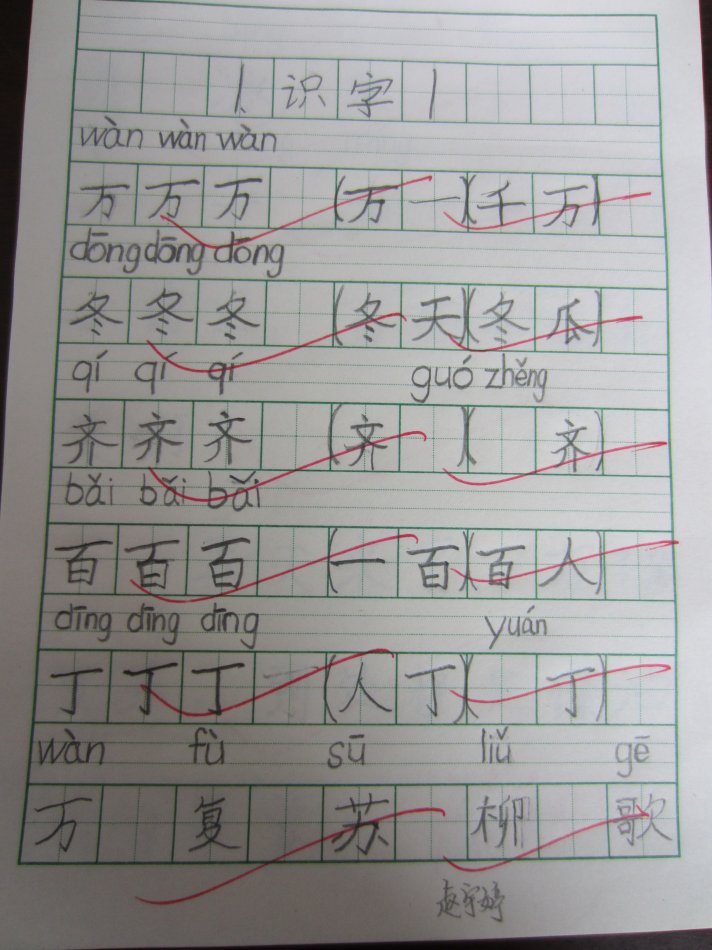 1、识字1
wàn wàn wàn
万万万(万一)(千万)
dōng dōng dōng
冬冬冬(冬天)(冬瓜)
qí qí qí guó zhěng
齐齐齐(齐 )( 齐)
bǎi bǎi bǎi
百百百(一百)(百人)
dīng dīng dīng yuán
丁丁丁(人丁)( 丁)
wàn fù sū liǔ gē
万复苏柳歌